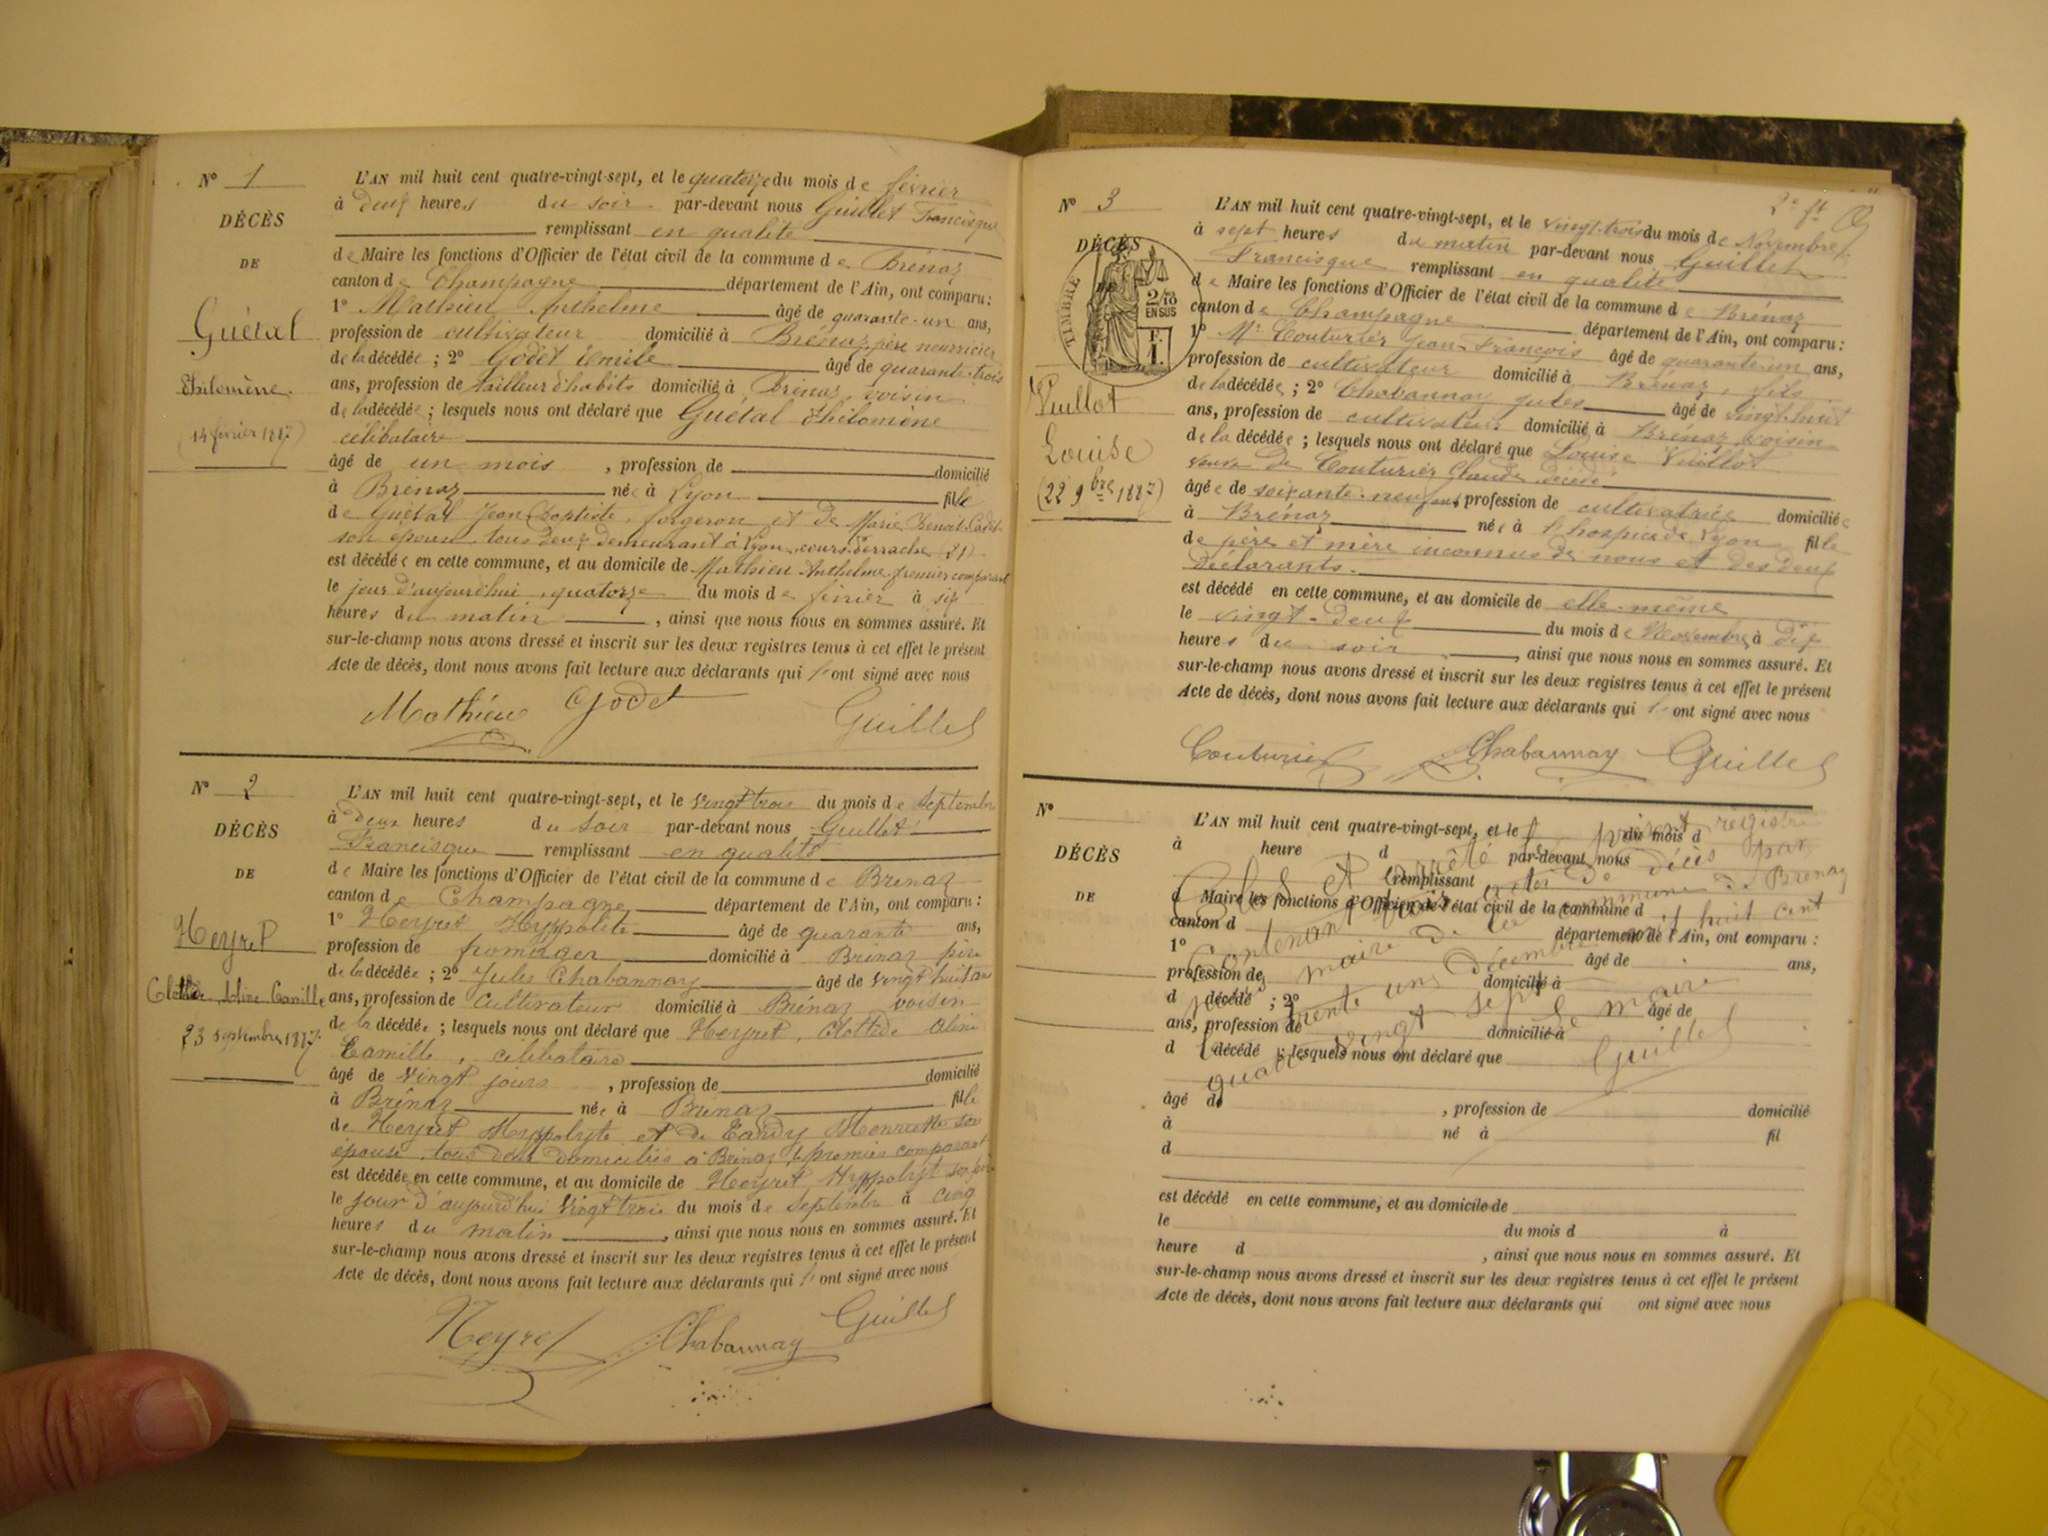 N° 1
DÉCÈS
DE
Guétal
Philomène.
(14 février 1887)
L'AN mil huit cent quatre-vingt-sept, et le quatorze du mois de février
à deux heures du soir par-devant nous Guillet Francisque
remplissant en qualité
de Maire les fonctions d'Officier de l'état civil de la commune de Brénaz
canton de Champagne département de l'Ain, ont comparu :
1° Mathieu Anthelme âgé de quarante-un ans,
profession de cultivateur domicilié à Brénaz, père nourricier
de la décédée ; 2° Godet Emile âgé de quarante-trois
ans, profession de tailleur d'habits domicilié à Brénaz, voisin
de la décédée ; lesquels nous ont déclaré que Guétal Philomène
célibataire
âgé de un mois , profession de domicilié
à Brénaz née à Lyon fille
de Guétal Jean Baptiste, forgeron et de Marie Benoit
son épouse, tous deux demeurant à Lyon, cours Perrache 21
est décédée en cette commune, et au domicile de Mathieu Anthelme premier comparant
le jour d'aujourd'hui, quatorze du mois de février à six
heures du matin , ainsi que nous nous en sommes assuré. Et
sur-le-champ nous avons dressé et inscrit sur les deux registres tenus à cet effet le présent
Acte de décès, dont nous avons fait lecture aux déclarants qui l'ont signé avec nous
Mathieu Godet Guillet
N° 2
DÉCÈS
DE
Heyret
Clotilde Aline Camille
23 septembre 1887
L'AN mil huit cent quatre-vingt-sept, et le vingt trois du mois de septembre
à deux heures du soir par-devant nous Guillet
Francisque remplissant en qualité
de Maire les fonctions d'Officier de l'état civil de la commune de Brénaz
canton de Champagne département de l'Ain, ont comparu :
1° Heyret Hyppolite âgé de quarante ans,
profession de fromager domicilié à Brénaz père
de la décédée ; 2° Jules Chabannay âgé de vingt huit ans
ans, profession de cultivateur domicilié à Brénaz voisin
de la décédée ; lesquels nous ont déclaré que Heyret, Clotilde Aline
Camille, célibataire
âgé de vingt jours , profession de domicilié
à Brénaz née à Brénaz fille
de Heyret Hyppolyte et de Tardy Henriette son
épouse, tous deux domiciliés à Brénaz, le premier comparant
est décédée en cette commune, et au domicile de Heyret Hyppolyt son père
le jour d'aujourd'hui vingt trois du mois de septembre à cinq
heures du matin , ainsi que nous nous en sommes assuré. Et
sur-le-champ nous avons dressé et inscrit sur les deux registres tenus à cet effet le présent
Acte de décès, dont nous avons fait lecture aux déclarants qui l'ont signé avec nous
Heyret Chabannay Guillet
2e ft
N° 3
DÉCÈS
DE
TIMBRE
2/10
EN SUS
Vuillot
Louise
(22 9bre 1887)
L'AN mil huit cent quatre-vingt-sept, et le vingt-trois du mois de Novembre
à sept heures du matin par-devant nous Guillet
Francisque remplissant en qualité
de Maire les fonctions d'Officier de l'état civil de la commune de Brénaz
canton de Champagne département de l'Ain, ont comparu :
1° Mr Couturier Jean François âgé de quarante-un ans,
profession de cultivateur domicilié à Brénaz, fils
de la décédée ; 2° Chabannay Jules âgé de vingt-huit
ans, profession de cultivateur domicilié à Brénaz, voisin
de la décédée ; lesquels nous ont déclaré que Louise Vuillot
veuve de Couturier Claude décédé
âgée de soixante-neuf ans, profession de cultivatrice domiciliée
à Brénaz née à l'hospice de Lyon fille
de père et mère inconnus de nous et des deux
déclarants.
est décédé en cette commune, et au domicile de elle-même
le vingt-deux du mois de Novembre à dix
heures du soir , ainsi que nous nous en sommes assuré. Et
sur-le-champ nous avons dressé et inscrit sur les deux registres tenus à cet effet le présent
Acte de décès, dont nous avons fait lecture aux déclarants qui l'ont signé avec nous
Couturier Chabannay Guillet
N°
DÉCÈS
DE
L'AN mil huit cent quatre-vingt-sept, et le du mois d
à heure d par-devant nous
remplissant
d Maire les fonctions d'Officier de l'état civil de la commune d
canton d département de l'Ain, ont comparu :
1° âgé de ans,
profession de domicilié à
d décédé ; 2° âgé de
ans, profession de domicilié à
d décédé ; lesquels nous ont déclaré que
âgé de , profession de domicilié
à né à fil
d
est décédé en cette commune, et au domicile de
le du mois d à
heure d , ainsi que nous nous en sommes assuré. Et
sur-le-champ nous avons dressé et inscrit sur les deux registres tenus à cet effet le présent
Acte de décès, dont nous avons fait lecture aux déclarants qui ont signé avec nous
le présent registre
Clos et arrêté
contenant trois actes de décès par
nous maire de la commune de Brénaz
le trente un décembre mil huit cent
quatre vingt sept
Le maire
Guillet